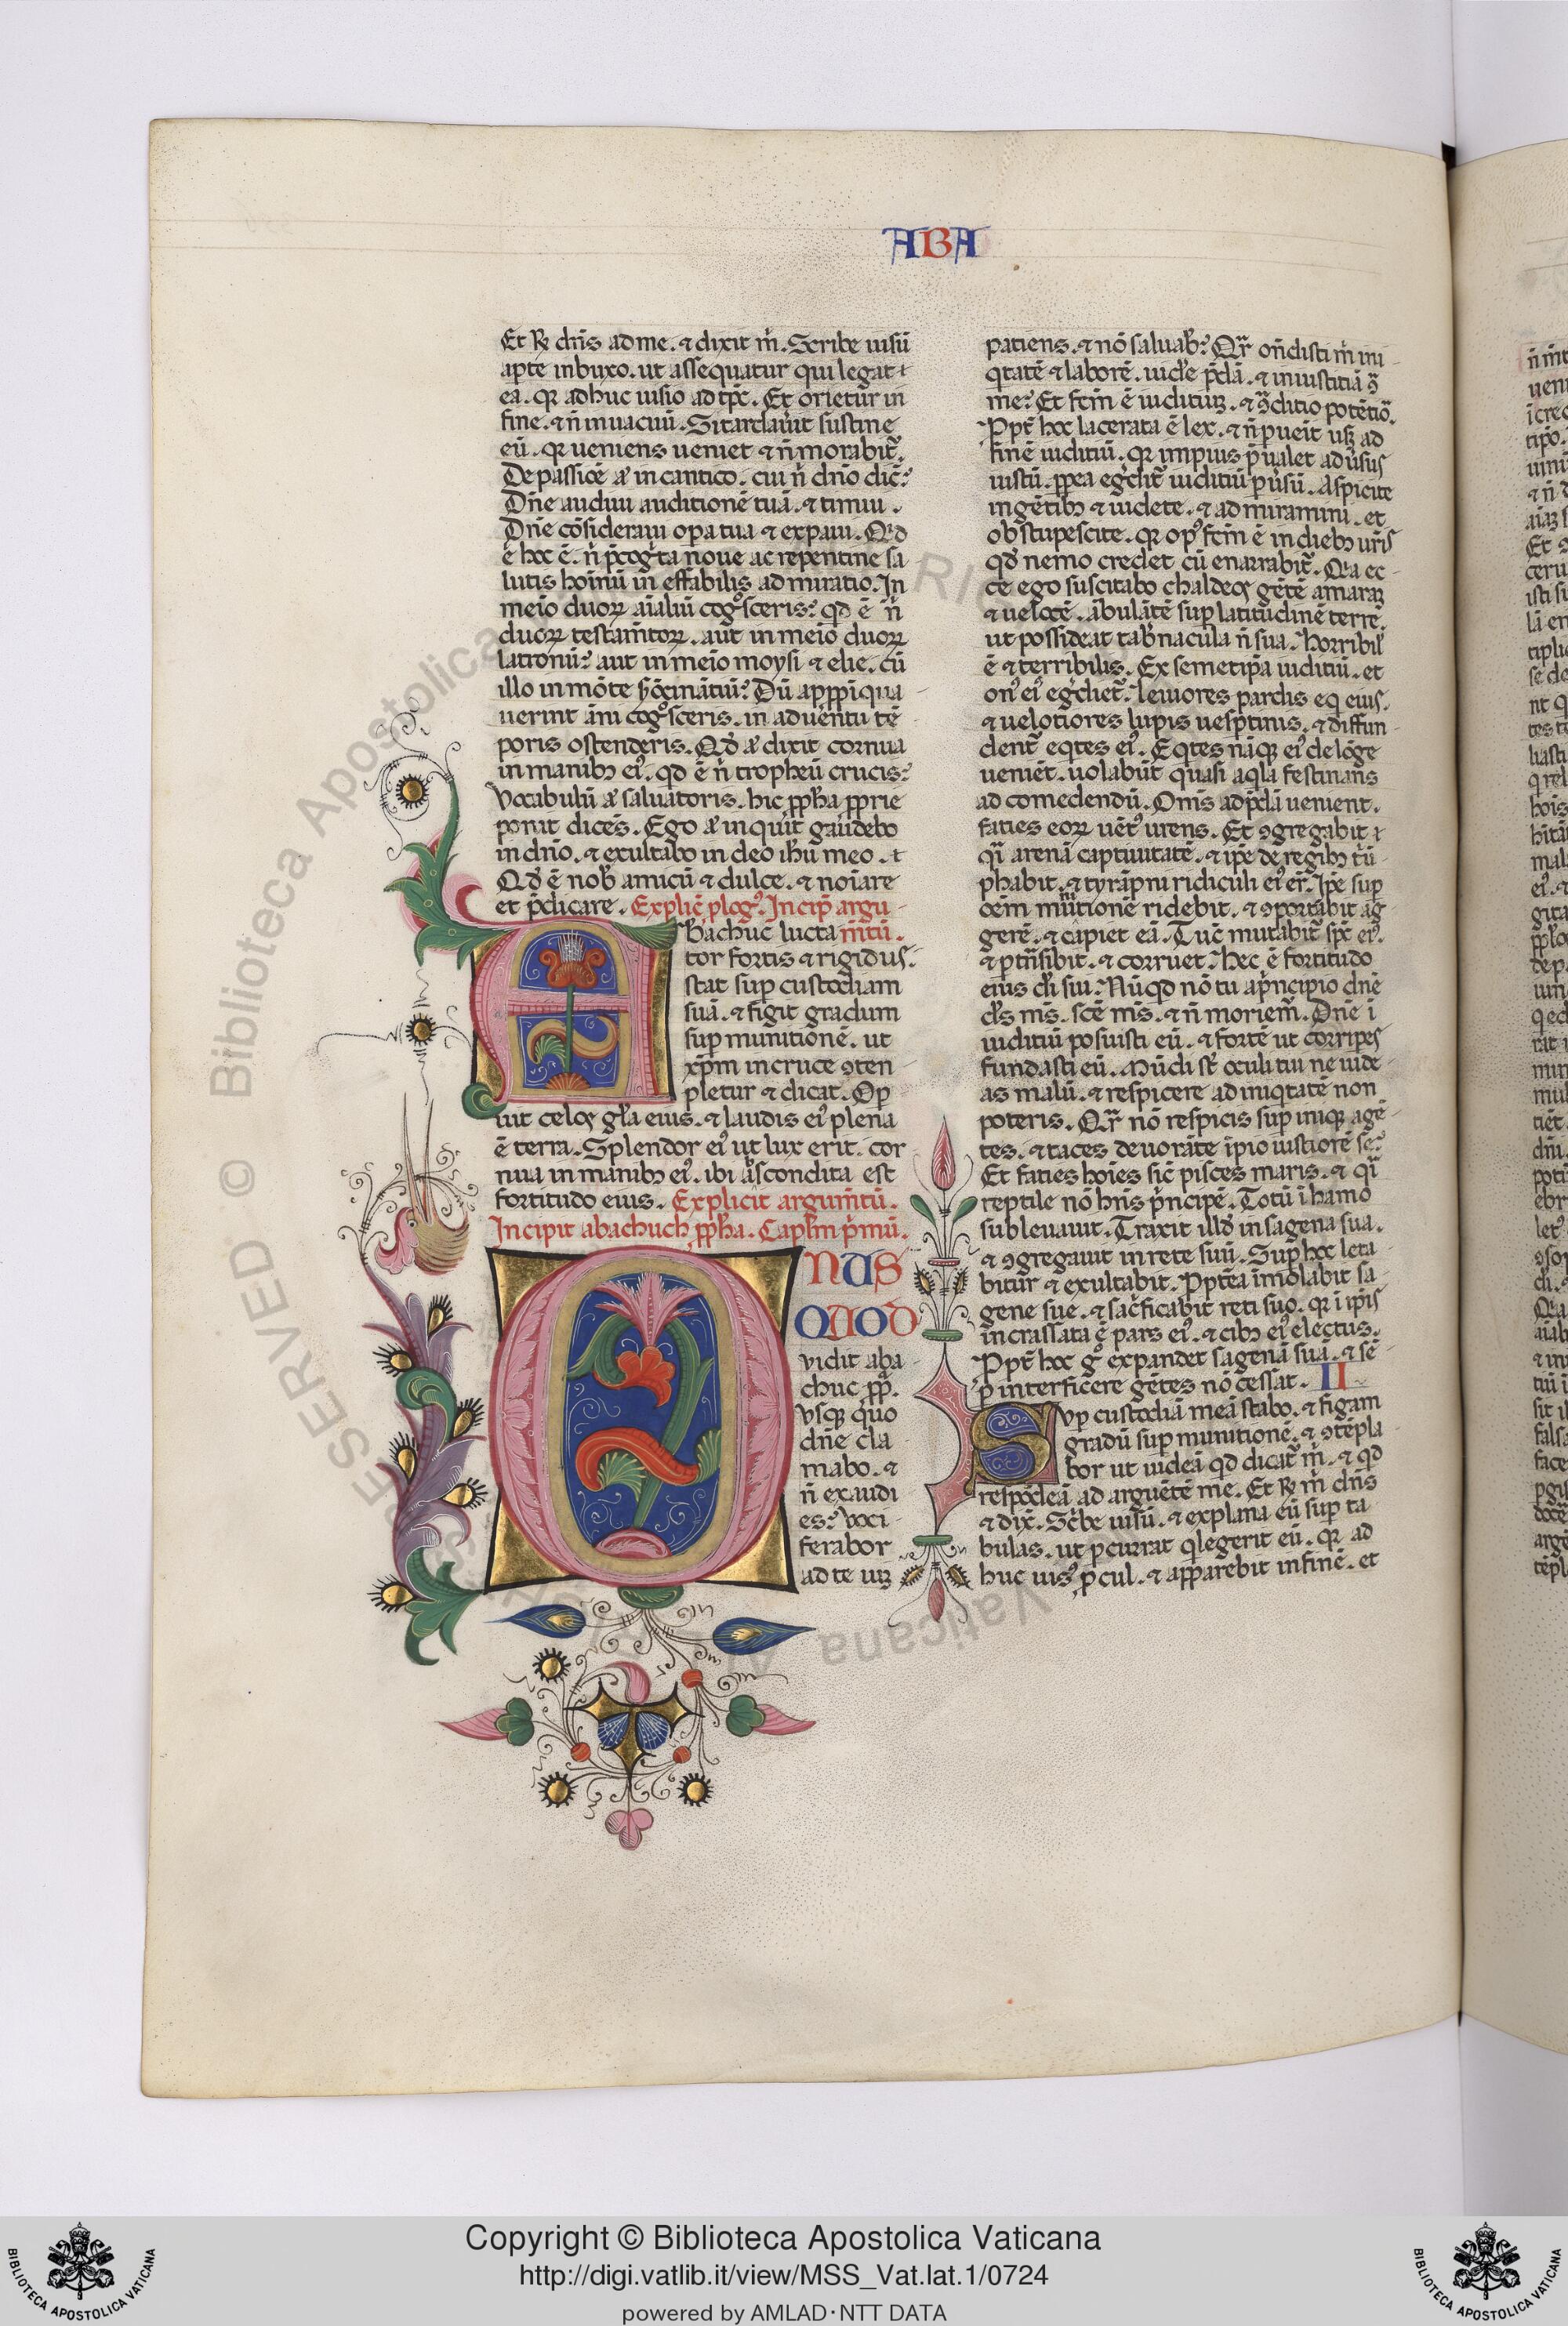 ABA
Et ꝶ dn̄s ad me. ⁊ dixit m̄. Scribe uisū
apte in buxo. ut assequatur qui legat
ea. qꝛ adhuc uisio ad tp̄c. Et orietur in
fine. ⁊ n̄ in uacuū. Si tardauit sustine
eū. qꝛ ueniens ueniet ⁊ n̄ morabit᷑.
De passiōe in cantico. cui n̄ dn̄o dic̄?
Dn̄e audiui auditionē tuā. ⁊ timui.
Dn̄e cōsideraui opa tua ⁊ expaui. Qd
ē hoc ē. n̄ p̄cogta noue ac repentine sa
lutis hoīnū in effabilis admiratio. In
meīo duoꝝ aīaliū cog̊sceris? qd ē n̄
duoꝝ testam̄toꝝ. aut in meīo duoꝝ
latronū? aut in meīo moysi ⁊ elie. cū
illo in mōte
uerint āni cog̊sceris. in aduentu tē
poris ostenderis. Qd dixit cornua
in manibꝫ ei᷒. qd ē n̄ tropheū crucis?
Vocabulū saluatoris. hic ꝓpha ꝓprie
ponit dicēs. Ego inquit gaudebo
in dn̄o. ⁊ exultabo in deo ih̄u meo.
Qd ē nob̄ amicū ⁊ dulce. ⁊ noīare
et p̄dicare. Explic̄ plog᷒. Incip̄ argu
m̄tū.
Abachuc lucta
tor fortis ⁊ rigidus.
stat sup custodiam
suā. ⁊ figit gradum
sup munitionē. ut
xp̄m in cruce ꝯten
pletur ⁊ dicat. Op
uit celos gl̄a eius. ⁊ laudis ei᷒ plena
ē terra. Splendor ei᷒ ut lux erit. cor
nua in manibꝫ ei᷒. ibi abscondita est
fortitudo eius. Explicit argum̄tū.
Incipit abachuch ꝓpha. Caplm̄ p̄mū.
ONUS
QUOD
vidit aba
chuc ꝓp.
Vsqꝫ quo
dn̄e cla
mabo. ⁊
n̄ exaudi
es? Voci
ferabor
ad te uiꝫ
patiens. ⁊ nō saluab? Qr̄ ondisti m̄ ini
qtatē ⁊ laborē. uide p̄dā. ⁊ iniustitiā ꝯ̄
me? Et fcm̄ ē iuditiuꝫ. ⁊ ꝯ̄ditio potētio᷑.
Ppt̄ hoc lacerata ē lex. ⁊ n̄ pueīt usqꝫ ad
finē iuditiū. qꝛ impius p̄ualet aduersus
iustū. ꝓpea egdit᷑ iuditiū puersū. Aspicite
in gētibꝫ ⁊ uidete. ⁊ admiramini. et
obstupescite. qꝛ op᷒ fcm̄ ē in diebꝫ ur̄is
qd nemo credet cū enarrabit᷑. Qia ec
ce ego suscitabo chaldeos gētē amaraꝫ
⁊ uelocē. ābulātē sup latitudinē terre.
ut possideat tab̄nacula n̄ sua. Horribil᷑
ē ⁊ terribilis. Ex semetip̄a iuditiū. et
on᷒ ei᷒ egdiet᷑. Leuiores pardis eq ei᷒.
⁊ uelotiores lupis uesp̄tinis. ⁊ diffun
dent᷑ eqtes ei᷒. Eqtes nāqꝫ ei᷒ de lōge
ueniēt. uolabūt quasi aqla festinans
ad comedendū. Omīs ad p̄dā uenient.
faties eoꝝ uēt᷒ urens. Et ꝯgregabit
qi arenā captiuitatē. ⁊ ip̄e de regibꝫ tū
phabit. ⁊ tyrāpni ridiculi ei᷒ er̄t. Ip̄e sup
oēm munitionē ridebit. ⁊ ꝯportabit ag
gerē. ⁊ capiet eā. Tuc̄ mutabit᷑ sp̄c ei᷒.
⁊ ptn̄sibit. ⁊ corruet. Hec ē fortitudo
eius di sui. Nūqd nō tu ap̄ncipio dn̄e
ds̄ ms̄. scē ms̄. ⁊ n̄ moriem᷑. Dn̄e ī
iuditiū posuisti eū. ⁊ fortē ut corripes
fundasti eū. Mūdi st̄ oculi tui ne uide
as malū. ⁊ respicere ad iniqtatē non
poteris. Qr̄ nō respicis sup iniqꝫ agē
tes. ⁊ taces deuorāte īpio iustiorē se?
Et faties hoīes sic̄ pisces maris. ⁊ qi
reptile nō hn̄s p̄ncipē. Totū ī hamo
subleuauit. Traxit illd in sagena sua.
⁊ ꝯgregauit in rete suū. Sup hoc leta
bitur ⁊ exultabit. Ppt̄ea īmolabit sa
gene sue. ⁊ sac̄ficabit reti suo. qꝛ ī ip̄is
incrassata ē pars ei᷒. ⁊ cibꝫ ei᷒ electus.
Ppt̄ hoc g̊ expandet sagenā suā. ⁊ sē
p interficere gētes nō cessat. II
Sup custodiā meā stabo. ⁊ figam
gradū sup munitionē. ⁊ ꝯtēpla
bor ut uideā qd dicat᷑ m̄. ⁊ qd
respōdeā ad arguētē me. Et ꝶ m̄ dn̄s
⁊ dix̄. Sc̄be uisū. ⁊ explana eū sup ta
bulas. ut pcurrat qlegerit eū. qꝛ ad
huc uis᷒ pcul. ⁊ apparebit in finē. et
Copyright © Biblioteca Apostolica Vaticana
http://digi.vatlib.it/view/MSS_Vat.lat.1/0724
powered by AMLAD·NTT DATA
BIBLIOTECA APOSTOLICA VATICANA
BIBLIOTECA APOSTOLICA VATICANA